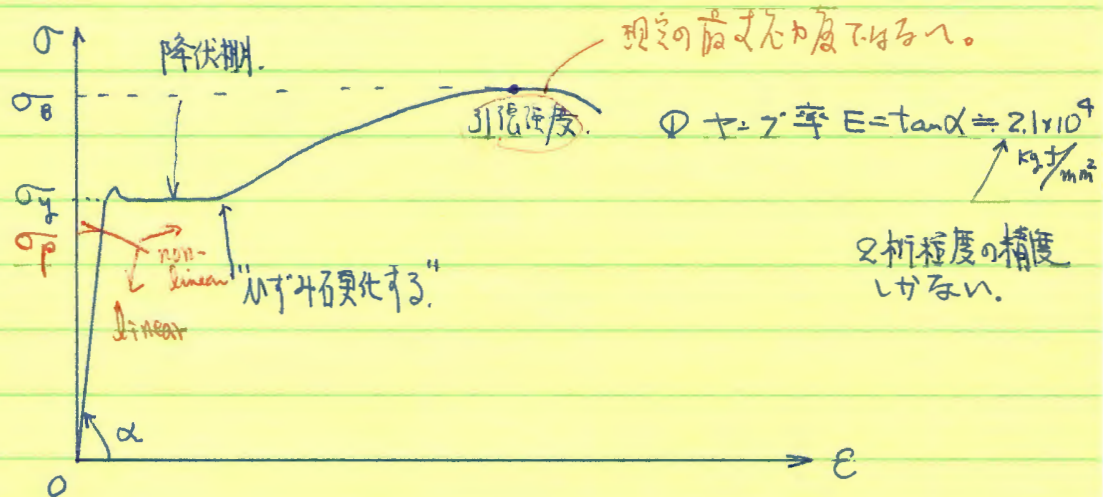 想定の最大応力度ではない。
σ
降伏棚.
σB
引張強度.
① ヤング率 E=tanα≒2.1×10⁴
kgf/mm²
σy
σp
non-
linear
linear
"ひずみ硬化する."
2桁程度の精度
しかない。
α
O
ε